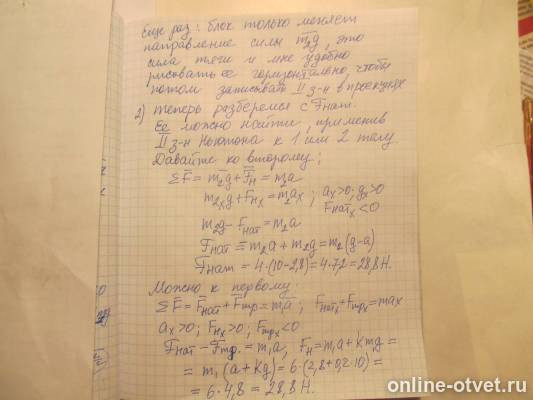 Еще раз: блок только меняет
направление силы m₂g, это
сила тяги и мне удобно
рисовать ее горизонтально, чтобы
потом записывать II з-н в проекциях
2) теперь разберемся с Fнат.
Её можно найти, применив
II з-н Ньютона к 1 или 2 телу.
Давайте ко второму:
ΣF̅ = m₂g̅ + F̅н = m₂a̅
m₂gₓ + Fнₓ = m₂aₓ ; aₓ>0; gₓ>0
Fнатₓ<0
m₂g - Fнат = m₂a
Fнат = m₂a + m₂g = m₂(g-a)
Fнат = 4·(10-2,8) = 4·7,2 = 28,8 Н.
Можно к первому:
ΣF̅ = F̅нат + F̅тр = m₁a̅ ; Fнатₓ + Fтрₓ = maₓ
aₓ>0; Fнₓ>0; Fтрₓ<0
Fнат - Fтр. = m₁a, Fн = m₁a + kmg =
= m₁(a+kg) = 6·(2,8+0,2·10) =
= 6·4,8 = 28,8 Н.
online-otvet.ru